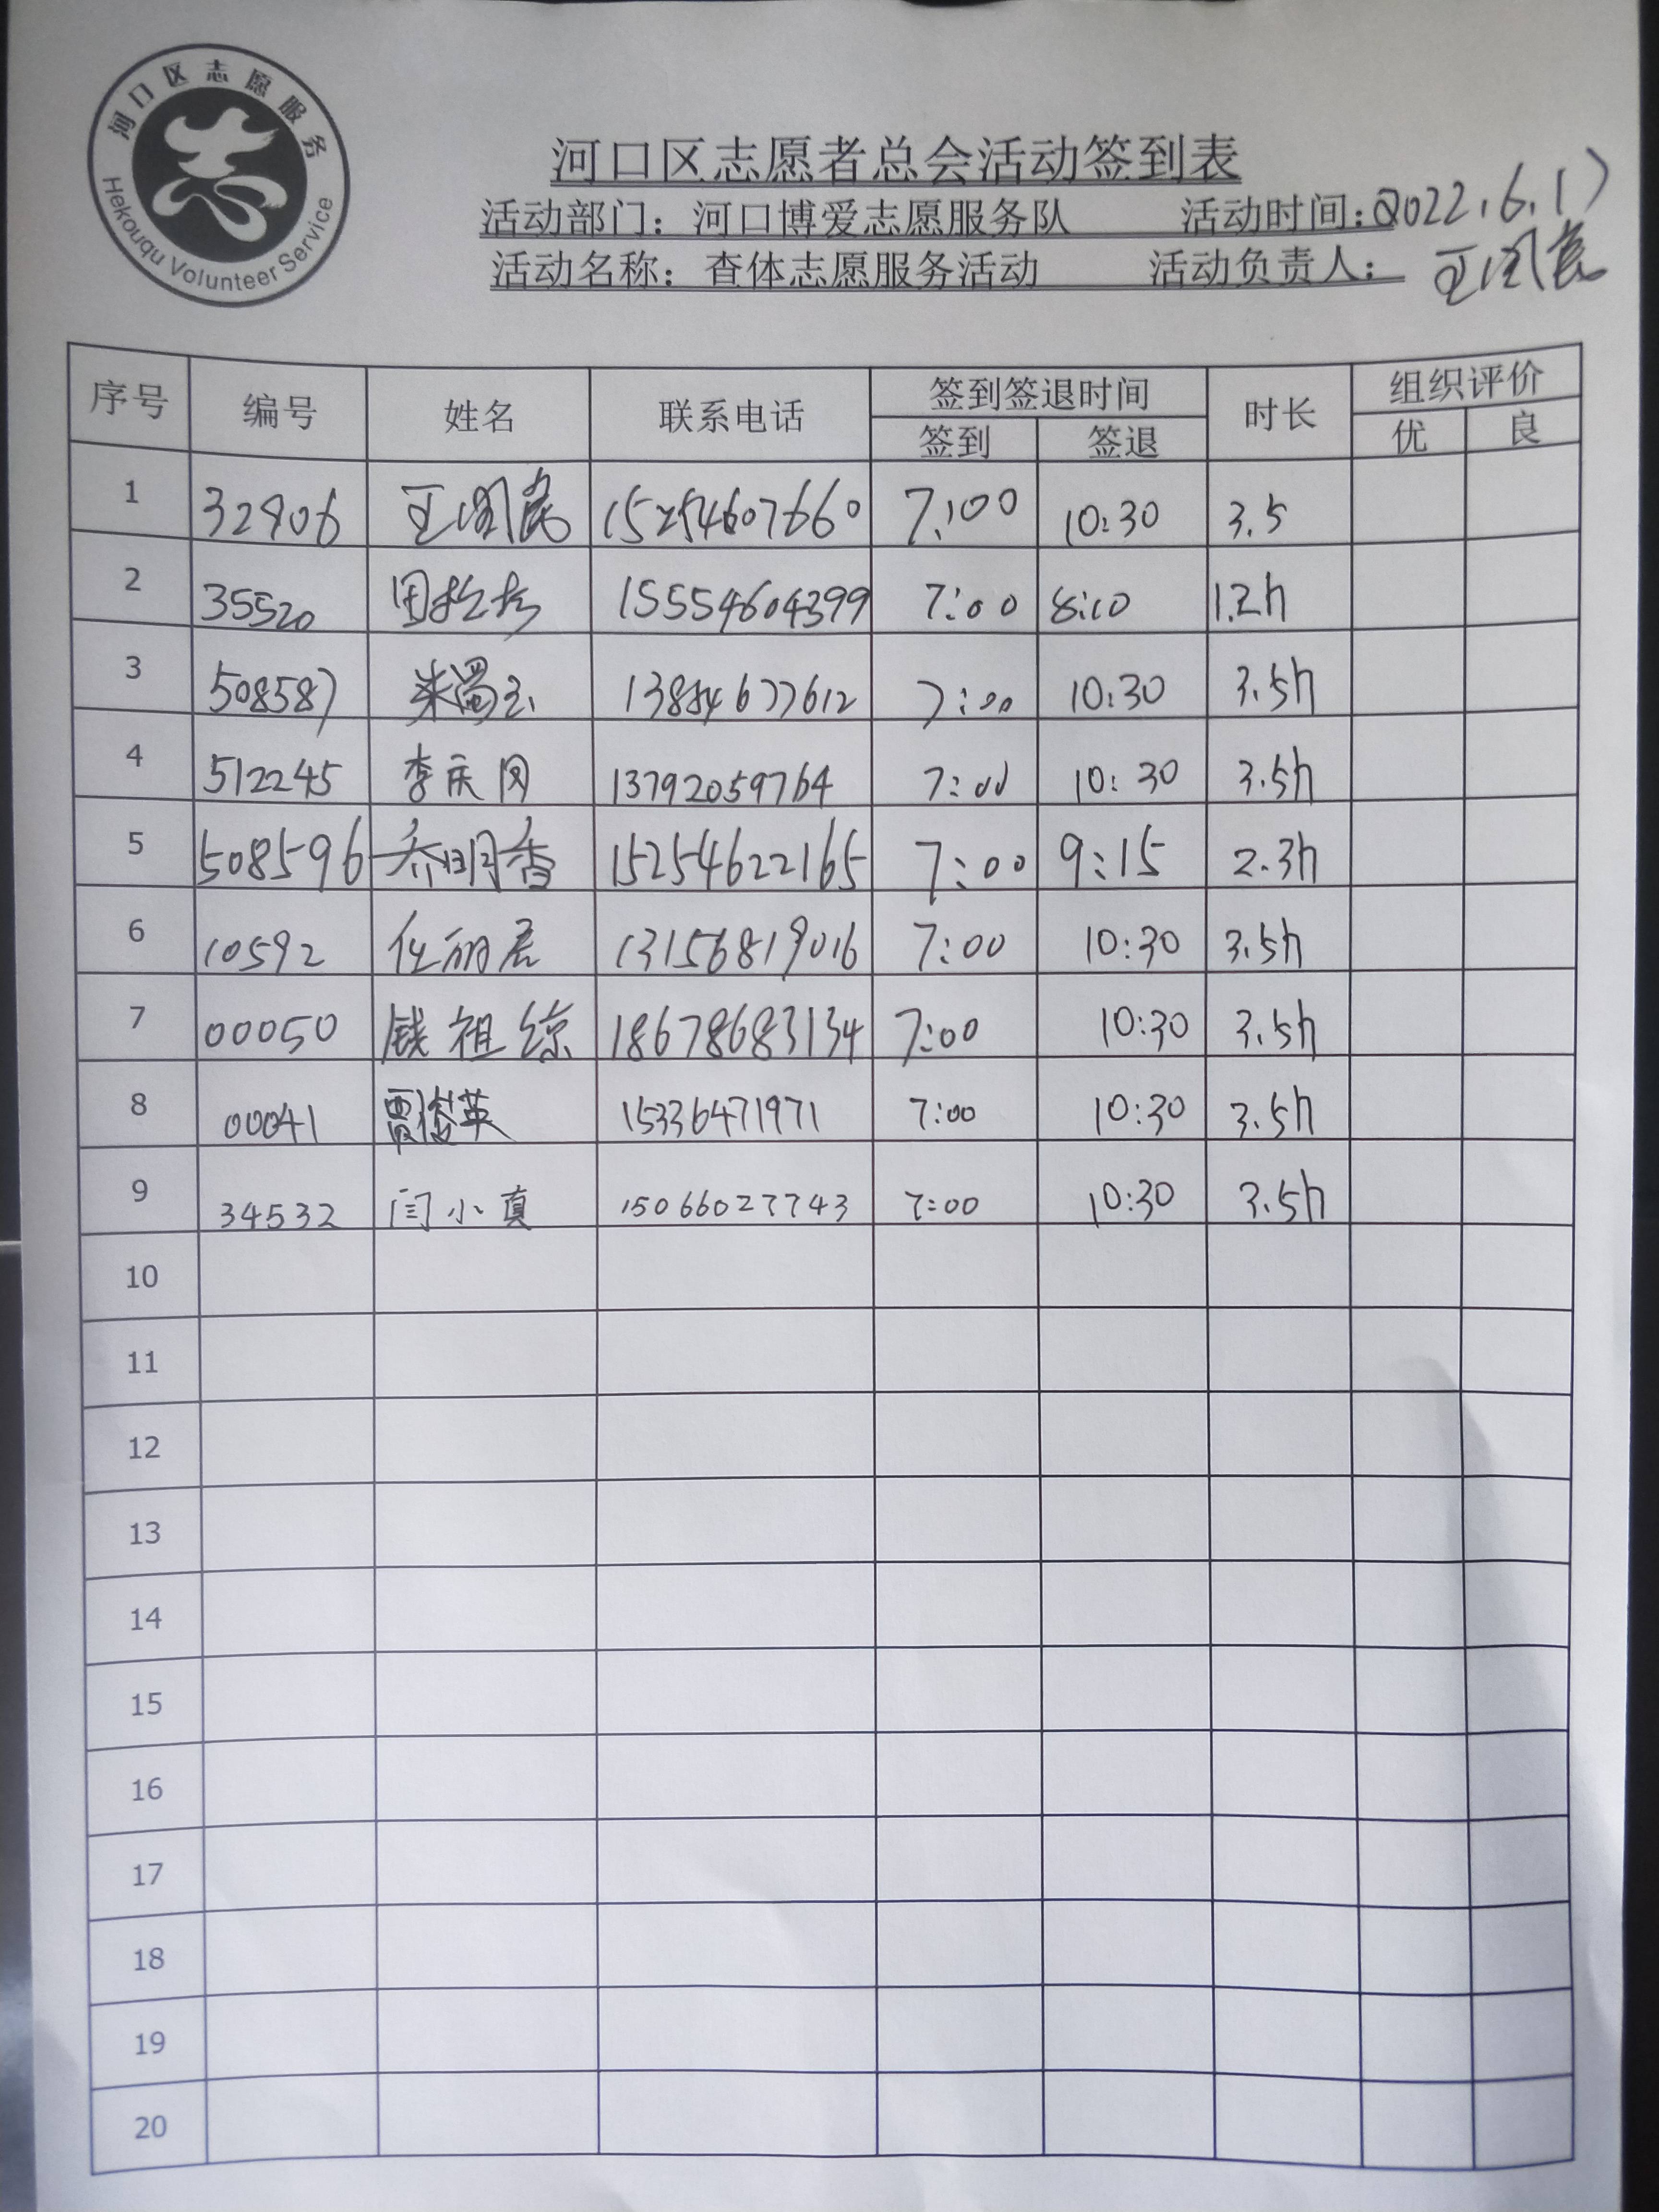 河口区志愿服务
Hekouqu Volunteer Service
河口区志愿者总会活动签到表
活动部门：河口博爱志愿服务队 活动时间：2022.6.17
活动名称：查体志愿服务活动 活动负责人：王
序号 编号 姓名 联系电话 签到签退时间 时长 组织评价
签到 签退 优 良
1 32906 王 15254607660 7:00 10:30 3.5
2 35520 15554604399 7:00 8:10 1.2h
3 508587 13884677612 7:00 10:30 3.5h
4 512245 李庆 13792059764 7:00 10:30 3.5h
5 508596 乔明香 15254622165 7:00 9:15 2.3h
6 10592 任丽君 13156819016 7:00 10:30 3.5h
7 00050 钱祖综 18678683134 7:00 10:30 3.5h
8 00041 贾俊英 15336471971 7:00 10:30 3.5h
9 34532 闫小真 15066027743 7:00 10:30 3.5h
10
11
12
13
14
15
16
17
18
19
20